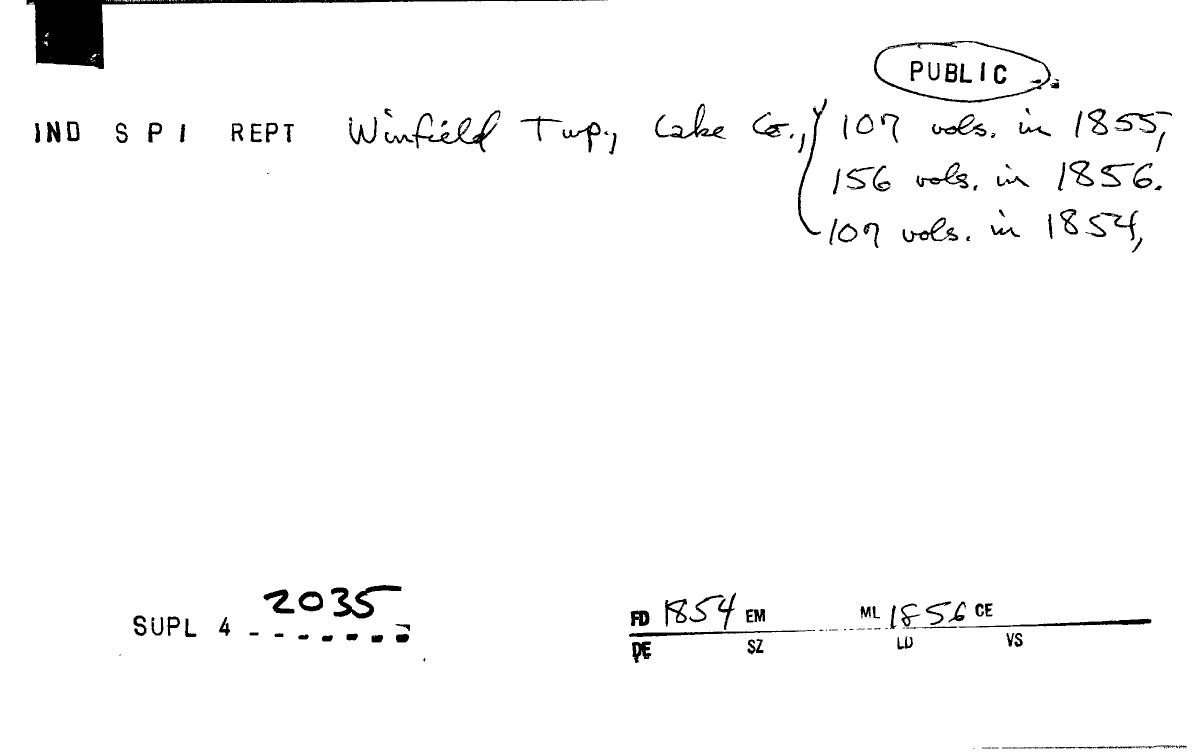 PUBLIC
IND S P I REPT Winfield Twp., Lake Co., 107 vols. in 1855,
156 vols. in 1856.
107 vols. in 1854,
2035
SUPL 4
FD 1854 EM ML 1856 CE
DE SZ LD VS